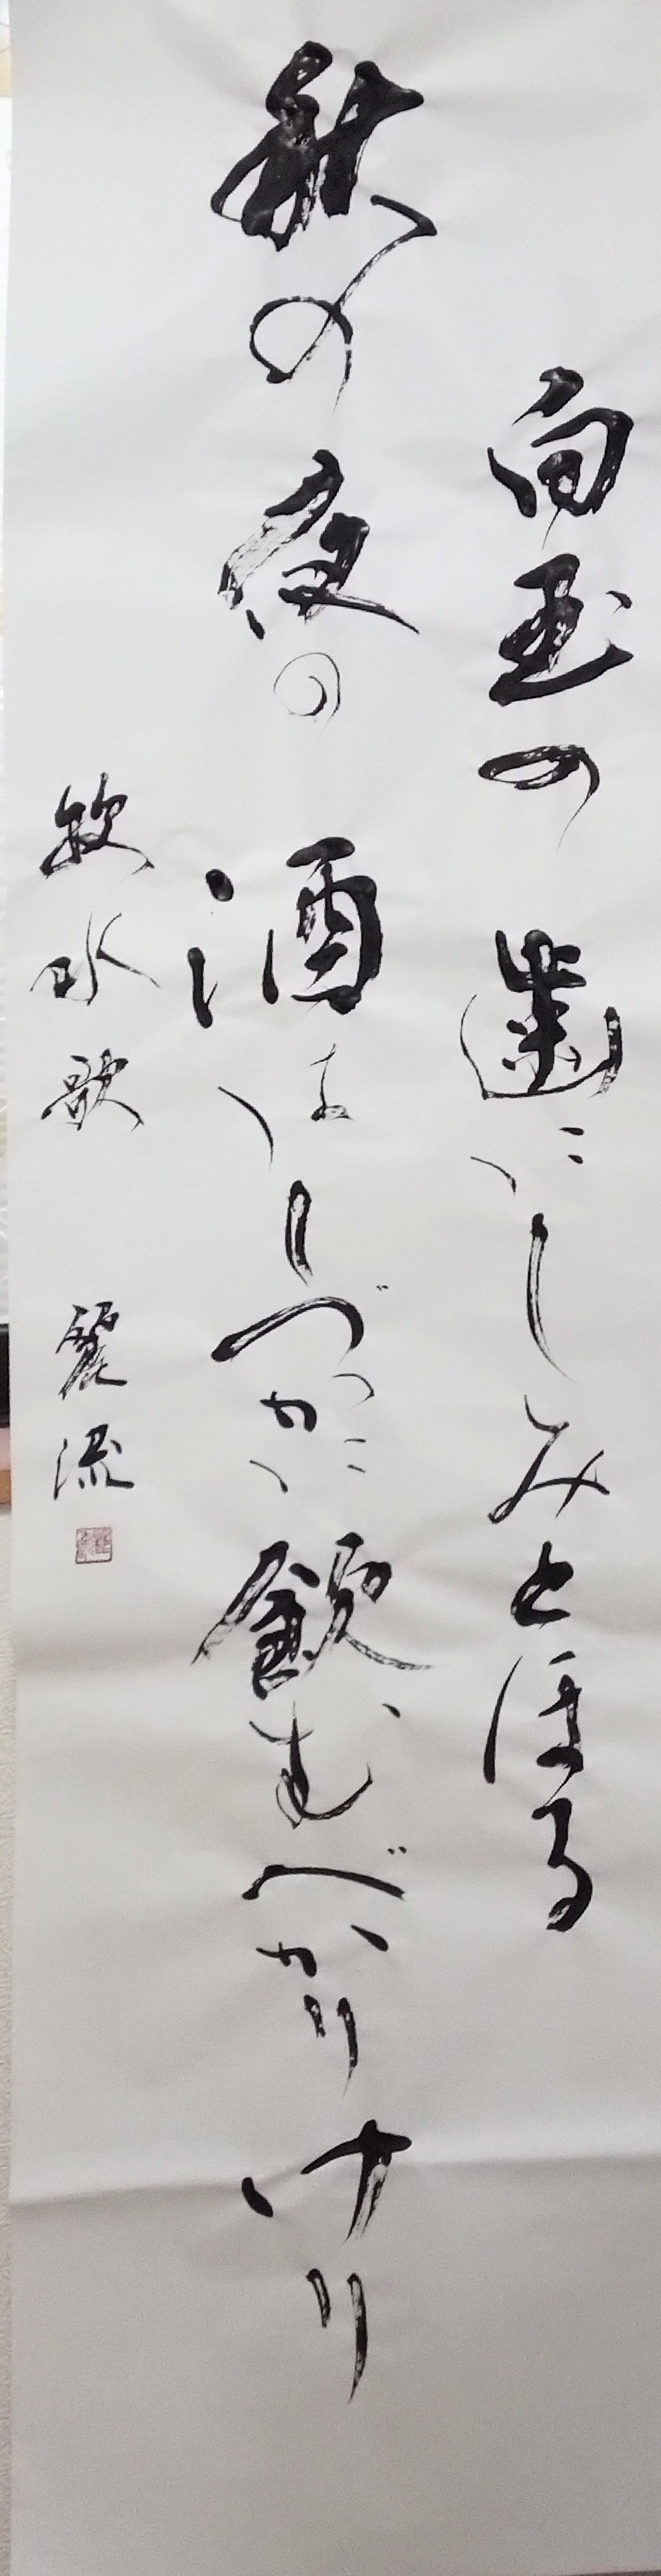 白玉の歯にしみとほる
秋の夜の酒はしづかに飲むべかりけり
牧水歌 麗流